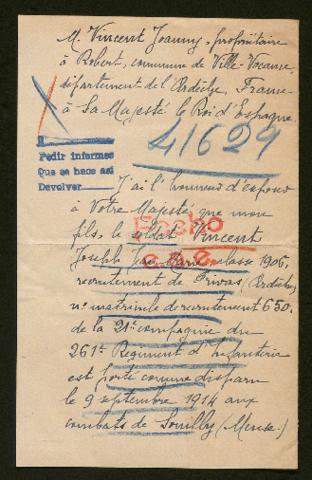 M. Vincent Joanny, propriétaire
à Robert, commune de Ville-Vocance,
département de l'Ardèche, France
à Sa Majesté le Roi d'Espagne.
41629
Pedir informes
Que se hace así
Devolver
J'ai l'honneur d'exposer
à Votre Majesté que mon
fils, le soldat Vincent
Joseph Jean Marie classe 1906,
recrutement de Privas (Ardèche)
no matricule de recrutement 650.
de la 21e compagnie du
261e Régiment d'Infanterie
est porté comme disparu
le 9 septembre 1914 aux
combats de Souilly (Meuse.)